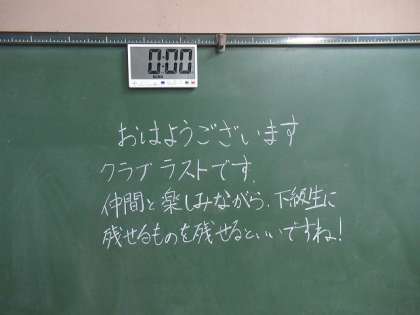 0:00
おはようございます
クラブラストです.
仲間と楽しみながら、下級生に
残せるものを残せるといいですね!